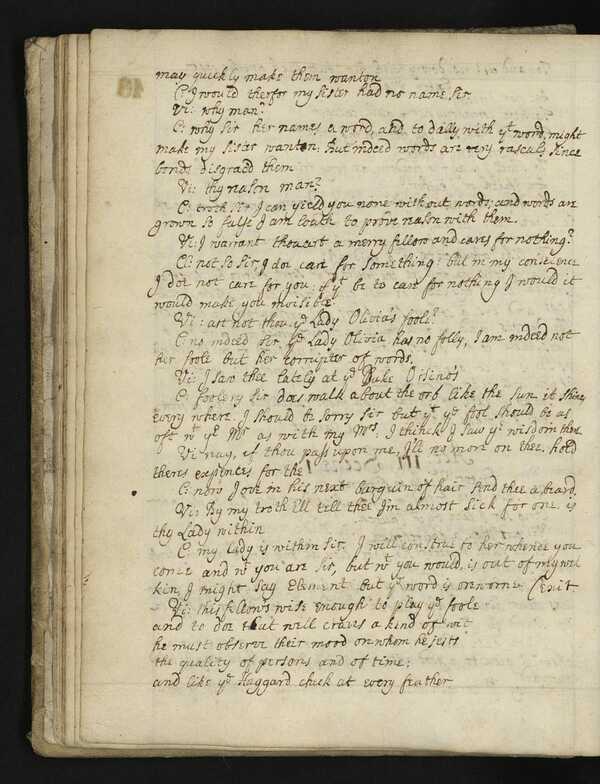 may quickly make them wanton
C: I would therfor my sister had no name sir
Vi: why man?
C: why sir her names a word, and to dally with yt word, might
make my sister wanton: But indeed words are very rascals since
bonds disgraed them
Vi: thy reason man?
C: troth sir I can yeeld you none without words, and words are
grown so false I am loath to prove reason with them.
Vi: I warrant thou art a merry fellow and cares for nothing?
C: not so sir, I doe care for something: but in my conscience
I doe not care for you: if yt be to care for nothing I would it
would make you invisible
Vi: art not thou ye Lady Olivia's foole?
C: no indeed sir, ye Lady Olivia has no folly, I am indeed not
her foole but her corrupter of words.
Vi: I saw thee lately at ye Duke Orsino's
C: foolery sir does walk about the orb like the sun it shines
every where. I should be sorry sir but yt ye fool should be as
oft wt ye Mr as with my Mrs. I thinck I saw yr wisdom there.
Vi: nay, if thou pass upon me, I'll no more on thee. hold
theres expences for the
C: now Jove in his next barguin of hair send thee a beard.
Vi: By my troth Ill tell thee I'm almost sick for one. is
thy Lady within
C: my lady is within sir. I will construe to her whence you
come and wt you are sir, but wt you would, is out of my wel
kin, I might say Element but ye word is overworne (Exit
Vi: this fellows wise enough to play ye foole
and to doe that well craves a kind of wit
he must observe their mood on whom he jests
the quality of persons and of time:
and like ye Haggard check at every feather